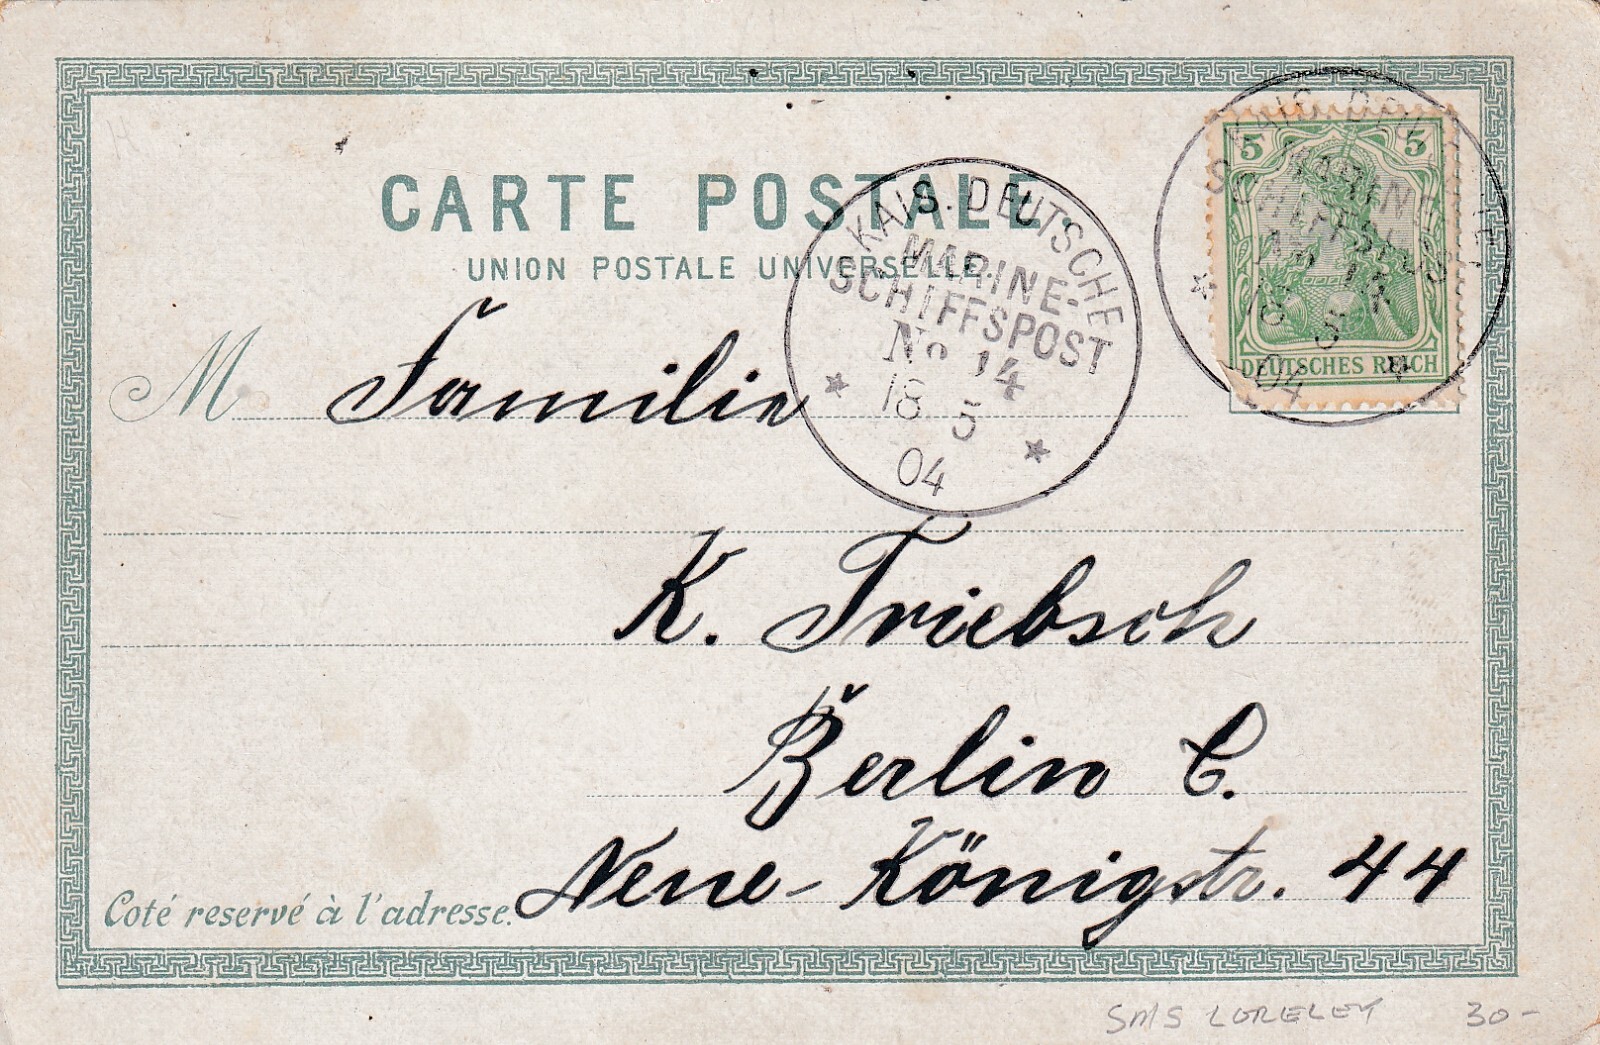 CARTE POSTALE
UNION POSTALE UNIVERSELLE.
KAIS. DEUTSCHE
MARINE-
SCHIFFSPOST
No 14
18 5
04
5 5
DEUTSCHES REICH
KAIS. DEUTSCHE
MARINE-
SCHIFFSPOST
No 14
18 5
04
M Familie
K. Triebsch
Berlin C.
Neue-Königstr. 44
Coté reservé à l'adresse.
SMS LORELEY 30-